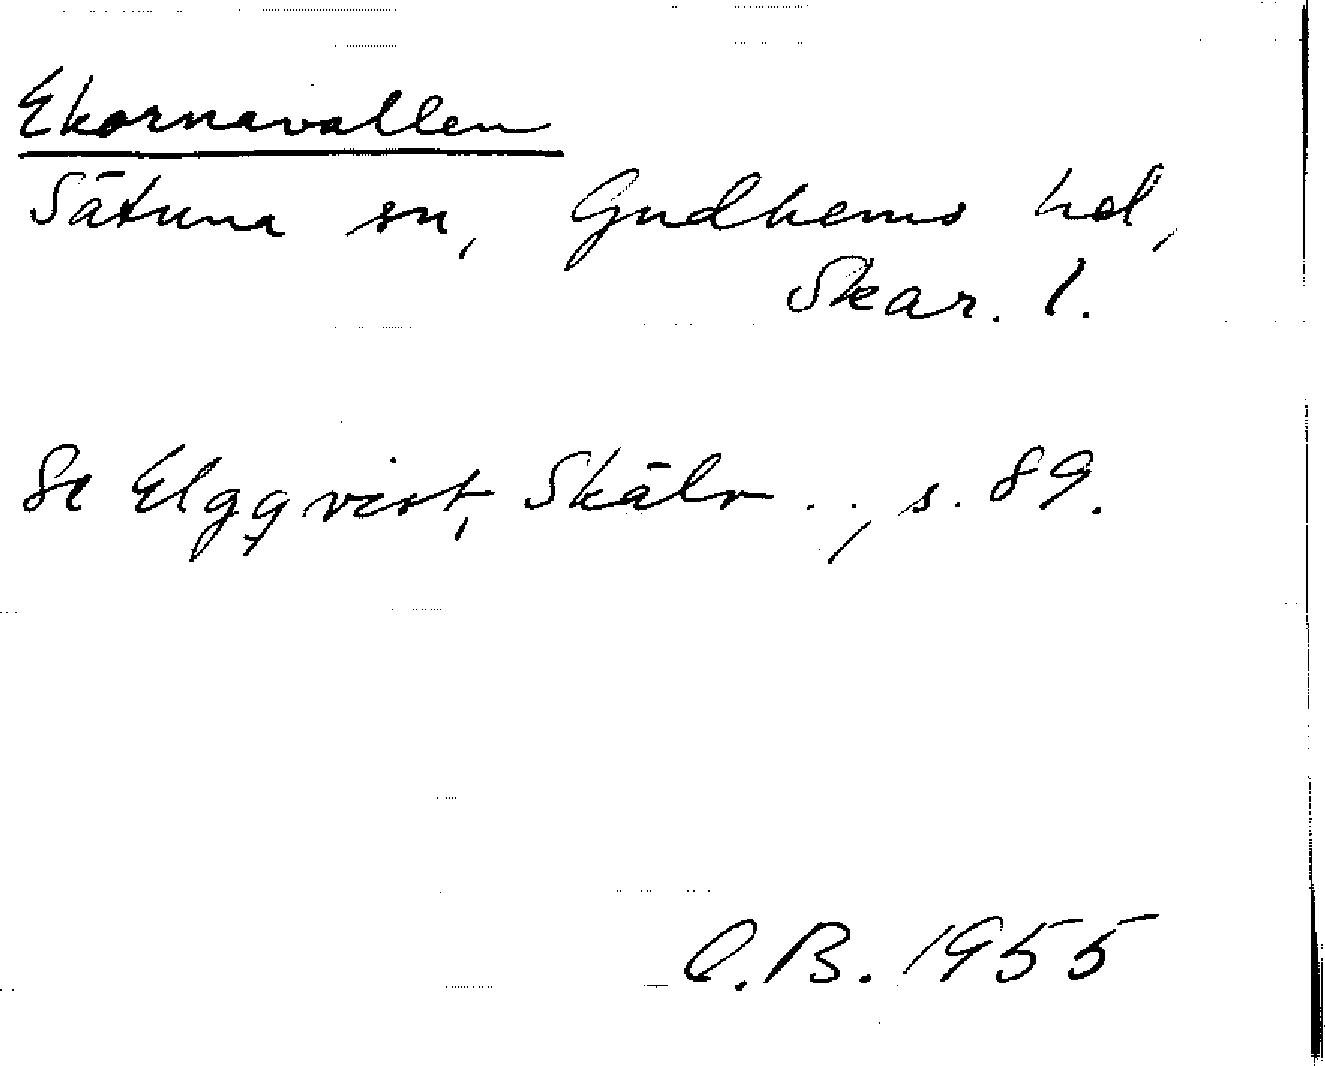 Ekornavallen
Sätuna sn, Gudhems hd,
Skar. l.
Se Elgqvist, Skälv . . , s. 89.
C.B. 1955